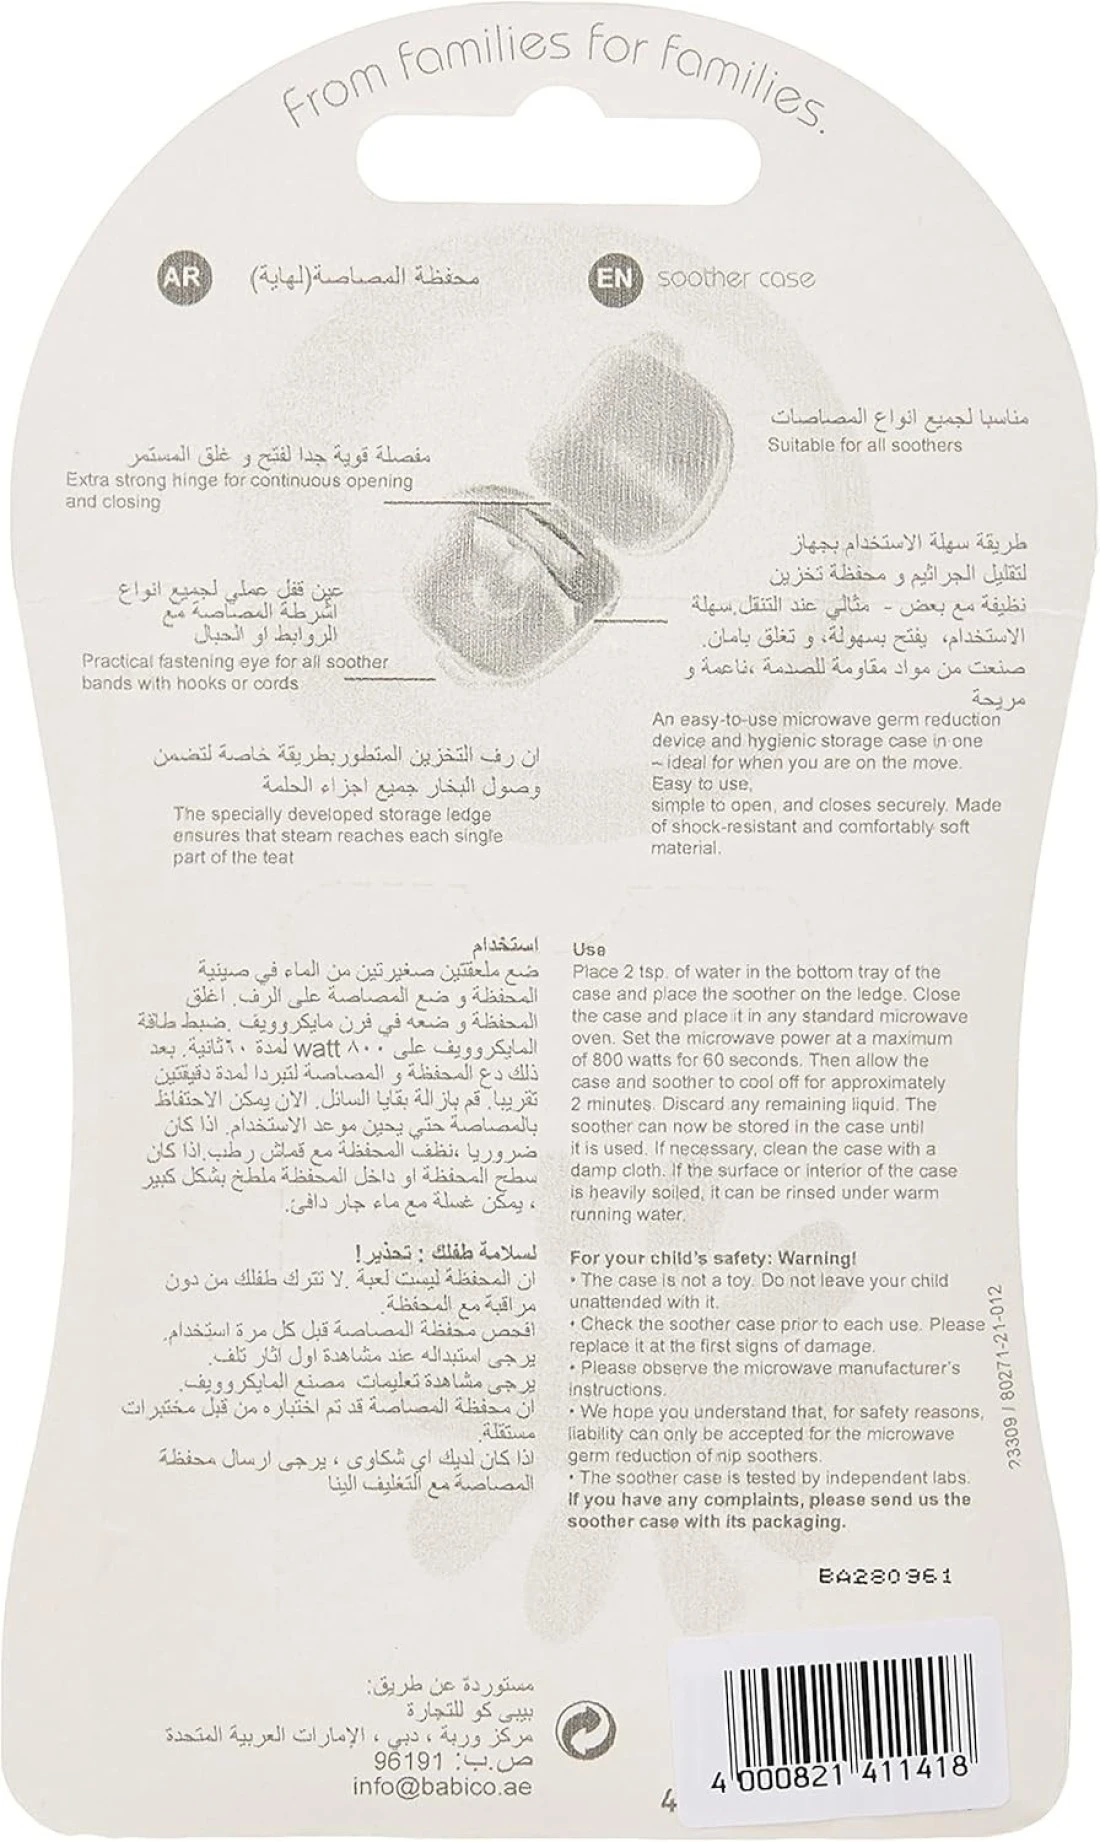 From families for families.
AR
محفظة المصاصة(لهاية)
EN
soother case
مناسبا لجميع انواع المصاصات
Suitable for all soothers
مفصلة قوية جدا لفتح و غلق المستمر
Extra strong hinge for continuous opening
and closing
طريقة سهلة الاستخدام بجهاز
لتقليل الجراثيم و محفظة تخزين
نظيفة مع بعض - مثالي عند التنقل.سهلة
الاستخدام، يفتح بسهولة، و تغلق بامان.
صنعت من مواد مقاومة للصدمة ،ناعمة و
مريحة
An easy-to-use microwave germ reduction
device and hygienic storage case in one
– ideal for when you are on the move.
Easy to use,
simple to open, and closes securely. Made
of shock-resistant and comfortably soft
material.
عين قفل عملي لجميع انواع
اشرطة المصاصة مع
الروابط او الحبال
Practical fastening eye for all soother
bands with hooks or cords
ان رف التخزين المتطور بطريقة خاصة لتضمن
وصول البخار جميع اجزاء الحلمة
The specially developed storage ledge
ensures that steam reaches each single
part of the teat
استخدام
ضع ملعقتين صغيرتين من الماء في صينية
المحفظة و ضع المصاصة على الرف. اغلق
المحفظة و ضعه في فرن مايكروويف .ضبط طاقة
المايكروويف على ٨٠٠ watt لمدة ٦٠ثانية. بعد
ذلك دع المحفظة و المصاصة لتبردا لمدة دقيقتين
تقريبا. قم بازالة بقايا السائل. الان يمكن الاحتفاظ
بالمصاصة حتي يحين موعد الاستخدام. اذا كان
ضروريا ،نظف المحفظة مع قماش رطب.اذا كان
سطح المحفظة او داخل المحفظة ملطخ بشكل كبير
، يمكن غسلة مع ماء جار دافئ.
لسلامة طفلك : تحذير!
ان المحفظة ليست لعبة .لا تترك طفلك من دون
مراقبة مع المحفظة.
افحص محفظة المصاصة قبل كل مرة استخدام.
يرجى استبداله عند مشاهدة اول اثار تلف.
يرجى مشاهدة تعليمات مصنع المايكروويف.
ان محفظة المصاصة قد تم اختباره من قبل مختبرات
مستقلة.
اذا كان لديك اي شكاوى ، يرجى ارسال محفظة
المصاصة مع التغليف الينا
Use
Place 2 tsp. of water in the bottom tray of the
case and place the soother on the ledge. Close
the case and place it in any standard microwave
oven. Set the microwave power at a maximum
of 800 watts for 60 seconds. Then allow the
case and soother to cool off for approximately
2 minutes. Discard any remaining liquid. The
soother can now be stored in the case until
it is used. If necessary, clean the case with a
damp cloth. If the surface or interior of the case
is heavily soiled, it can be rinsed under warm
running water.
For your child's safety: Warning!
• The case is not a toy. Do not leave your child
unattended with it.
• Check the soother case prior to each use. Please
replace it at the first signs of damage.
• Please observe the microwave manufacturer's
instructions.
• We hope you understand that, for safety reasons,
liability can only be accepted for the microwave
germ reduction of nip soothers.
• The soother case is tested by independent labs.
If you have any complaints, please send us the
soother case with its packaging.
23309 / 80271-21-012
BA280961
مستوردة عن طريق:
بيبي كو للتجارة
مركز وربة ، دبي ، الإمارات العربية المتحدة
ص.ب: 96191
info@babico.ae
4
4 000821 411418